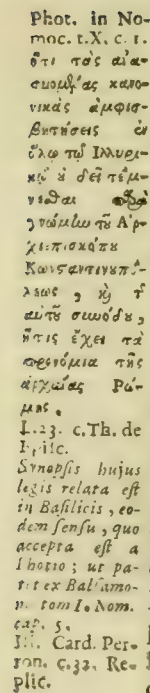 Phot. in No-
moc. t.X. c. 1.
ὅτι τὰς ἀια-
κυομδύας κανο-
νικὰς ἀμφισ-
βητήσεις ἐν
ὅλῳ τῷ Ἰλλυρι-
κῷ ἀ δεῖ τέμ-
νεσθαι
γνώμἰω τȣ͂ Ἀρ-
χιεπισκόπȣ
Κωνσταντινȣπό-
λεως , ϗ τ
αὐτȣ͂ συνόδȣ,
ἥτις ἔχει τὰ
προνόμια τῆς
ἀρχαίας Ρώ-
μης.
L.23. c.Th. de
Episc.
Synopsis hujus
legis relata est
in Basilicis, eo-
dem sensu, quo
accepta est a
Photio; ut pa-
tet ex Balsamo-
n. tom I. Nom.
cap. 5.
Card. Per-
ron. c.32. Re-
plic.